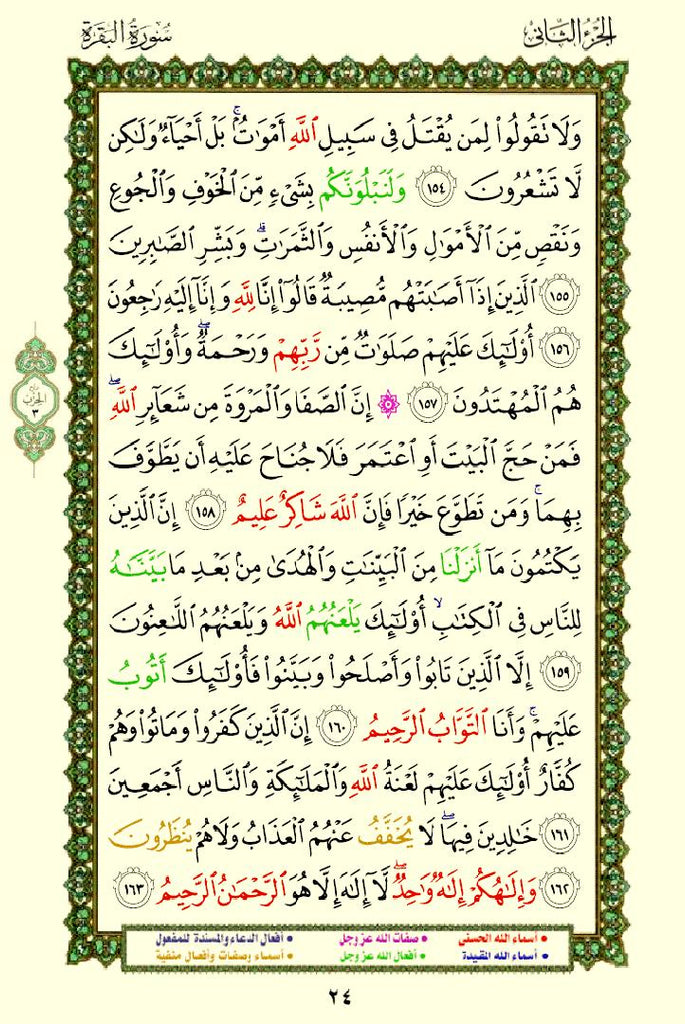 الجزء الثاني
سورة البقرة
وَلَا تَقُولُوا۟ لِمَن يُقْتَلُ فِى سَبِيلِ ٱللَّهِ أَمْوَٰتٌۢ ۚ بَلْ أَحْيَآءٌ وَلَـٰكِن
لَّا تَشْعُرُونَ ١٥٤ وَلَنَبْلُوَنَّكُم بِشَىْءٍ مِّنَ ٱلْخَوْفِ وَٱلْجُوعِ
وَنَقْصٍ مِّنَ ٱلْأَمْوَٰلِ وَٱلْأَنفُسِ وَٱلثَّمَرَٰتِ ۗ وَبَشِّرِ ٱلصَّـٰبِرِينَ
١٥٥ ٱلَّذِينَ إِذَآ أَصَـٰبَتْهُم مُّصِيبَةٌ قَالُوٓا۟ إِنَّا لِلَّهِ وَإِنَّآ إِلَيْهِ رَٰجِعُونَ
١٥٦ أُو۟لَـٰٓئِكَ عَلَيْهِمْ صَلَوَٰتٌ مِّن رَّبِّهِمْ وَرَحْمَةٌ ۖ وَأُو۟لَـٰٓئِكَ
هُمُ ٱلْمُهْتَدُونَ ١٥٧ ۞ إِنَّ ٱلصَّفَا وَٱلْمَرْوَةَ مِن شَعَآئِرِ ٱللَّهِ ۖ
فَمَنْ حَجَّ ٱلْبَيْتَ أَوِ ٱعْتَمَرَ فَلَا جُنَاحَ عَلَيْهِ أَن يَطَّوَّفَ
بِهِمَا ۚ وَمَن تَطَوَّعَ خَيْرًا فَإِنَّ ٱللَّهَ شَاكِرٌ عَلِيمٌ ١٥٨ إِنَّ ٱلَّذِينَ
يَكْتُمُونَ مَآ أَنزَلْنَا مِنَ ٱلْبَيِّنَـٰتِ وَٱلْهُدَىٰ مِنۢ بَعْدِ مَا بَيَّنَّـٰهُ
لِلنَّاسِ فِى ٱلْكِتَـٰبِ ۙ أُو۟لَـٰٓئِكَ يَلْعَنُهُمُ ٱللَّهُ وَيَلْعَنُهُمُ ٱللَّـٰعِنُونَ
١٥٩ إِلَّا ٱلَّذِينَ تَابُوا۟ وَأَصْلَحُوا۟ وَبَيَّنُوا۟ فَأُو۟لَـٰٓئِكَ أَتُوبُ
عَلَيْهِمْ ۚ وَأَنَا ٱلتَّوَّابُ ٱلرَّحِيمُ ١٦٠ إِنَّ ٱلَّذِينَ كَفَرُوا۟ وَمَاتُوا۟ وَهُمْ
كُفَّارٌ أُو۟لَـٰٓئِكَ عَلَيْهِمْ لَعْنَةُ ٱللَّهِ وَٱلْمَلَـٰٓئِكَةِ وَٱلنَّاسِ أَجْمَعِينَ
١٦١ خَـٰلِدِينَ فِيهَا ۖ لَا يُخَفَّفُ عَنْهُمُ ٱلْعَذَابُ وَلَا هُمْ يُنظَرُونَ
١٦٢ وَإِلَـٰهُكُمْ إِلَـٰهٌ وَٰحِدٌ ۖ لَّآ إِلَـٰهَ إِلَّا هُوَ ٱلرَّحْمَـٰنُ ٱلرَّحِيمُ ١٦٣
الحزب
٣
• أسماء الله الحسنى • صفات الله عز وجل • أفعال الدعاء والمسندة للمفعول
• أسماء الله المقيدة • أفعال الله عز وجل • أسماء وصفات وأفعال منفية
٢٤